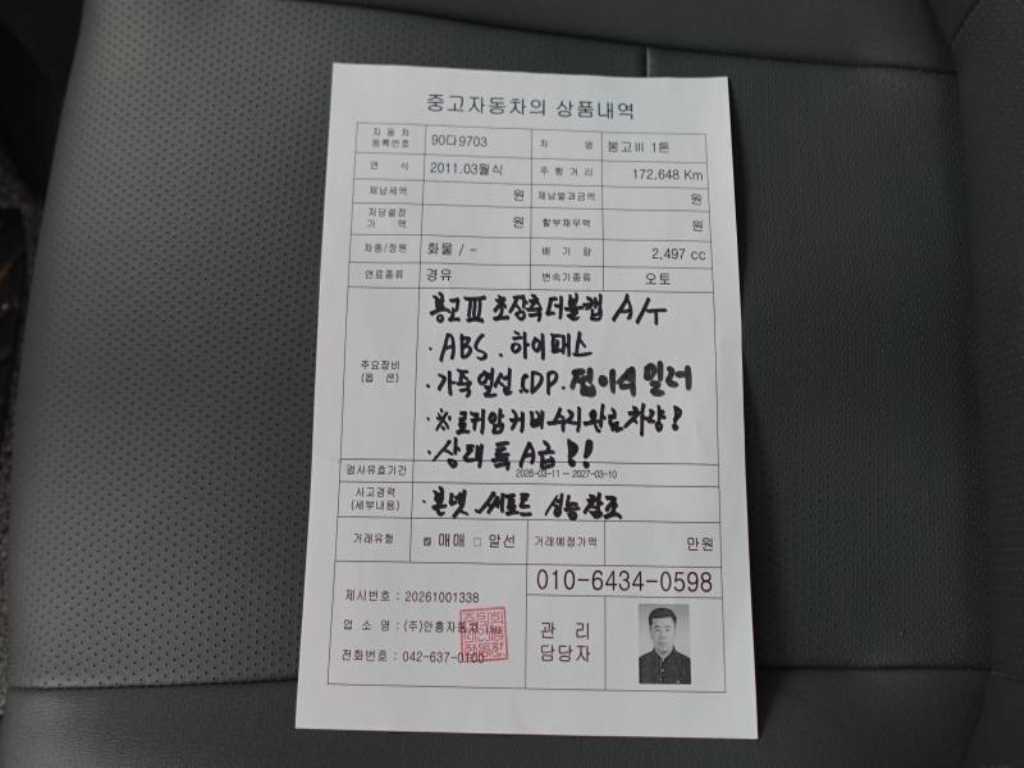 중고자동차의 상품내역
자동차등록번호 90다9703 차명 봉고Ⅲ 1톤
연식 2011.03월식 주행거리 172,648 Km
체납세액 원 체납범과금액 원
저당설정가액 원 할부채무액 원
차종/정원 화물 / - 배기량 2,497 cc
연료종류 경유 변속기종류 오토
주요장비(옵션)
봉고Ⅲ 초장축더블캡 A/T
· ABS . 하이패스
· 가죽열선 CDP. 접이식 밀러
· ※로커암커버 수리완료차량!
· 상태 특A급!!
검사유효기간 2026-03-11 ~ 2027-03-10
사고경력(세부내용) · 본넷 써포트 성능참조
거래유형 ☑ 매매 □ 알선 거래예정가액 만원
010-6434-0598
제시번호 : 20261001338
업소명 : (주)안흥자동차
전화번호 : 042-637-0100
관리담당자